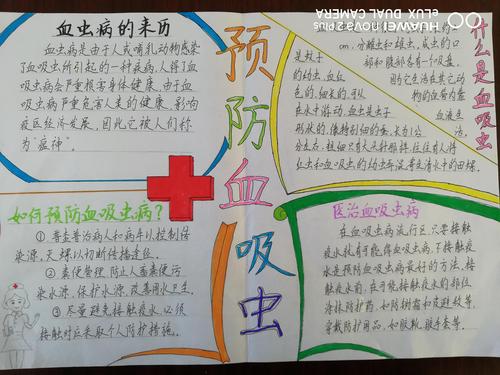 HUAWEI nova 2 PLUS
DUAL CAMERA
血虫病的来历
血虫病是由于人或哺乳动物感染
了血吸虫所引起的一种疾病,人得了血
吸虫病会严重损害身体健康。由于血
吸虫病严重危害人类的健康,影响
疫区经济发展,因此它被人们称
为"瘟神"。
预防血吸虫
什么是血吸虫
分雌虫和雄虫,成虫的口
部和腹部各有个吸盘,
的幼虫,血红
色的,细长的,可以
在水中游动,血虫是虫子
如何预防血吸虫病?
①普查普治病人和病牛以控制传
染源,灭螺以切断传播途径。
②粪便管理,防止人畜粪便污
染水源,保护水源,改善用水卫生。
③尽量避免接触疫水,必须
接触时应采取个人防护措施。
医治血吸虫病
在血吸虫病流行区,只要接触
疫水就有可能得血吸虫病,不接触疫
水是预防血吸虫病最好的方法。接
触疫水前,在可能接触疫水的部位
涂抹防护药,如防蚴霜和皮避敌等,
穿戴防护用品,如胶靴、胶手套等。